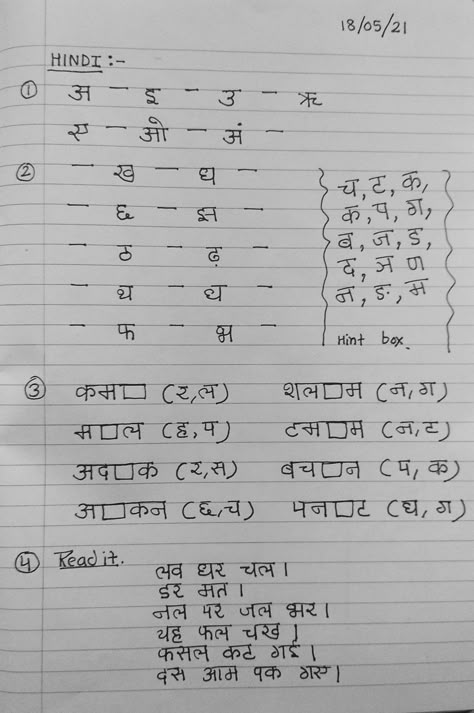 18/05/21
HINDI :-
① अ – इ – उ – ऋ
ए – ओ – अं –
② – ख – घ –
– छ – झ –
– ठ – ढ़ –
– थ – ध –
– फ – भ –
च, ट, क,
क, प, ग,
ब, ज, ड,
द, ञ ण
न, ङ, म
Hint box.
③ कम□ (र,ल) शल□म (न,ग)
म□ल (ह,प) टम□म (न,ट)
अद□क (र,स) बच□न (प,क)
अ□कन (छ,च) पन□ट (घ,ग)
④ Read it.
लव घर चल।
डर मत।
नल पर जल भर।
यह फल चख।
फसल कट गई।
दस आम पक गए।